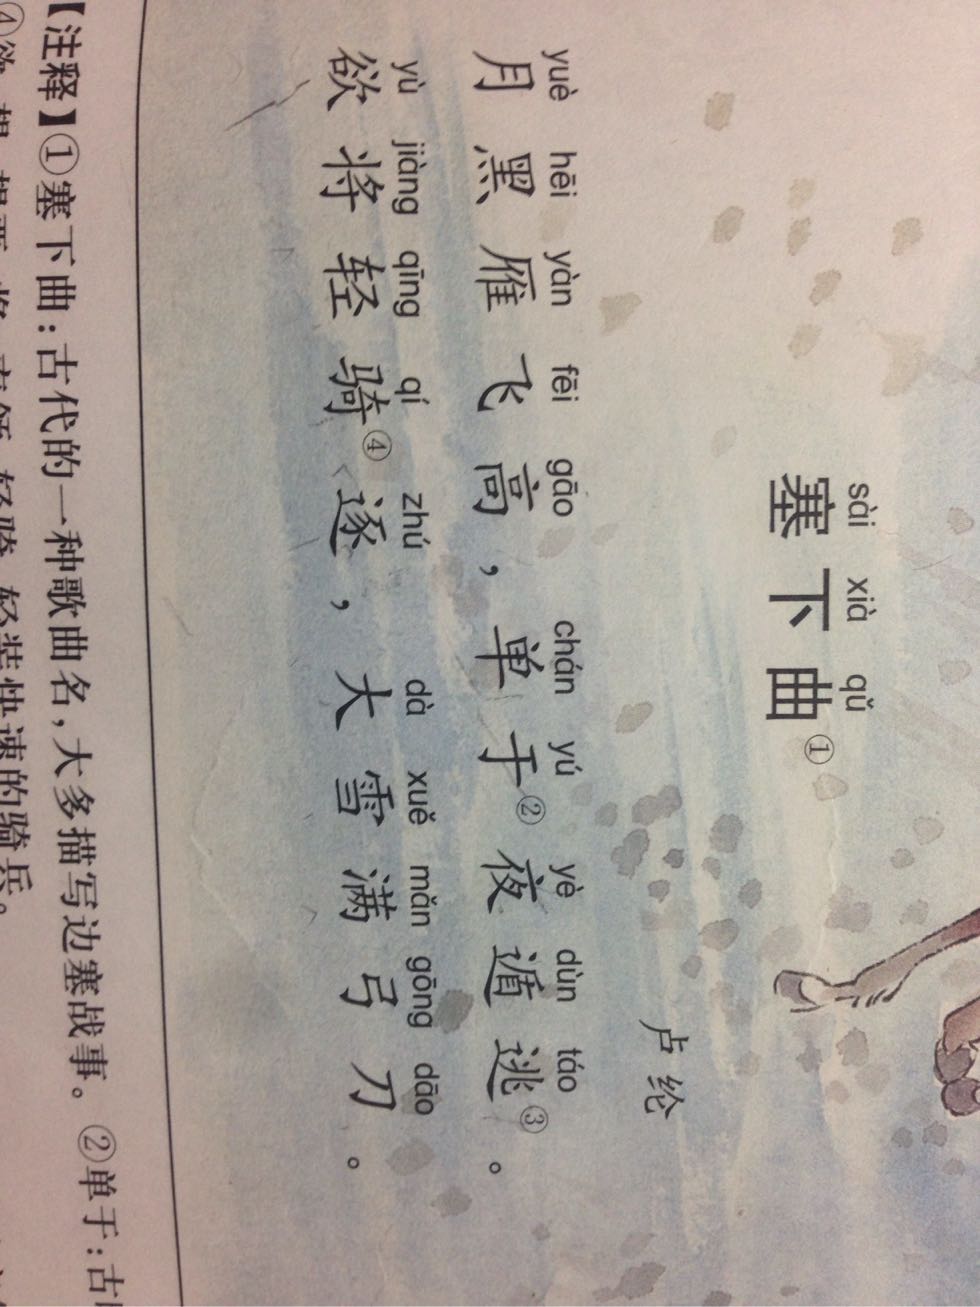 sài xià qǔ
塞下曲①
卢纶
yuè hēi yàn fēi gāo chán yú yè dùn táo
月黑雁飞高，单于②夜遁逃③。
yù jiàng qīng qí zhú dà xuě mǎn gōng dāo
欲将轻骑④逐，大雪满弓刀。
【注释】①塞下曲：古代的一种歌曲名，大多描写边塞战事。②单于：古
④欲 轻骑 轻装快速的骑兵。